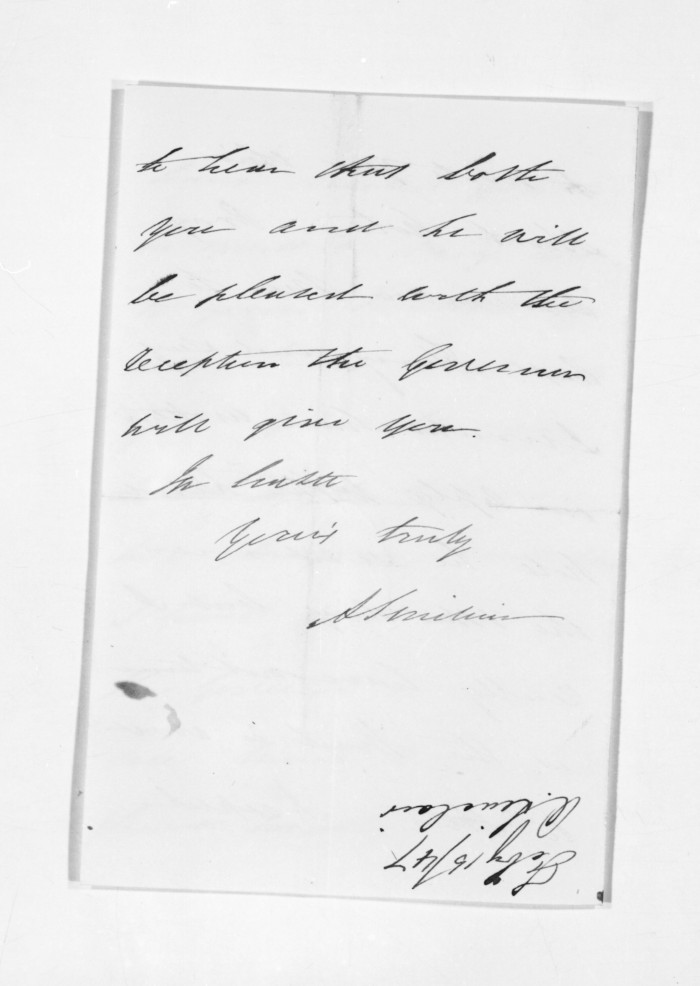 to hear that both
you and he will
be pleased with the
reception the Governor
will give you.
In haste
Your's truly
A Sinclair
A. Sinclair
Feby 16/47